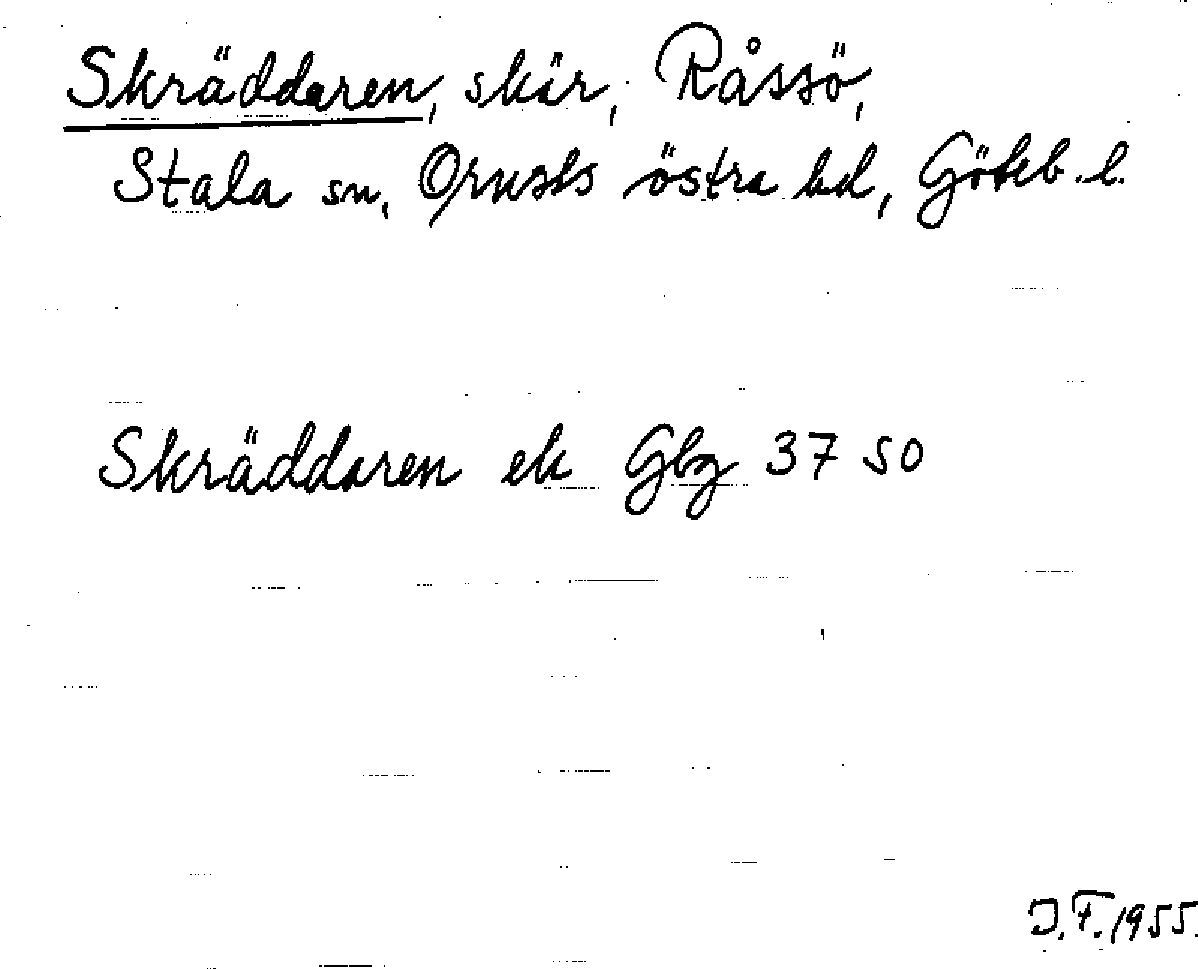 Skräddaren, skär, Råssö,
Stala sn, Orusts östra hd, Göteb. l.
Skräddaren ek Gbg 37 50
J.F. 1955.